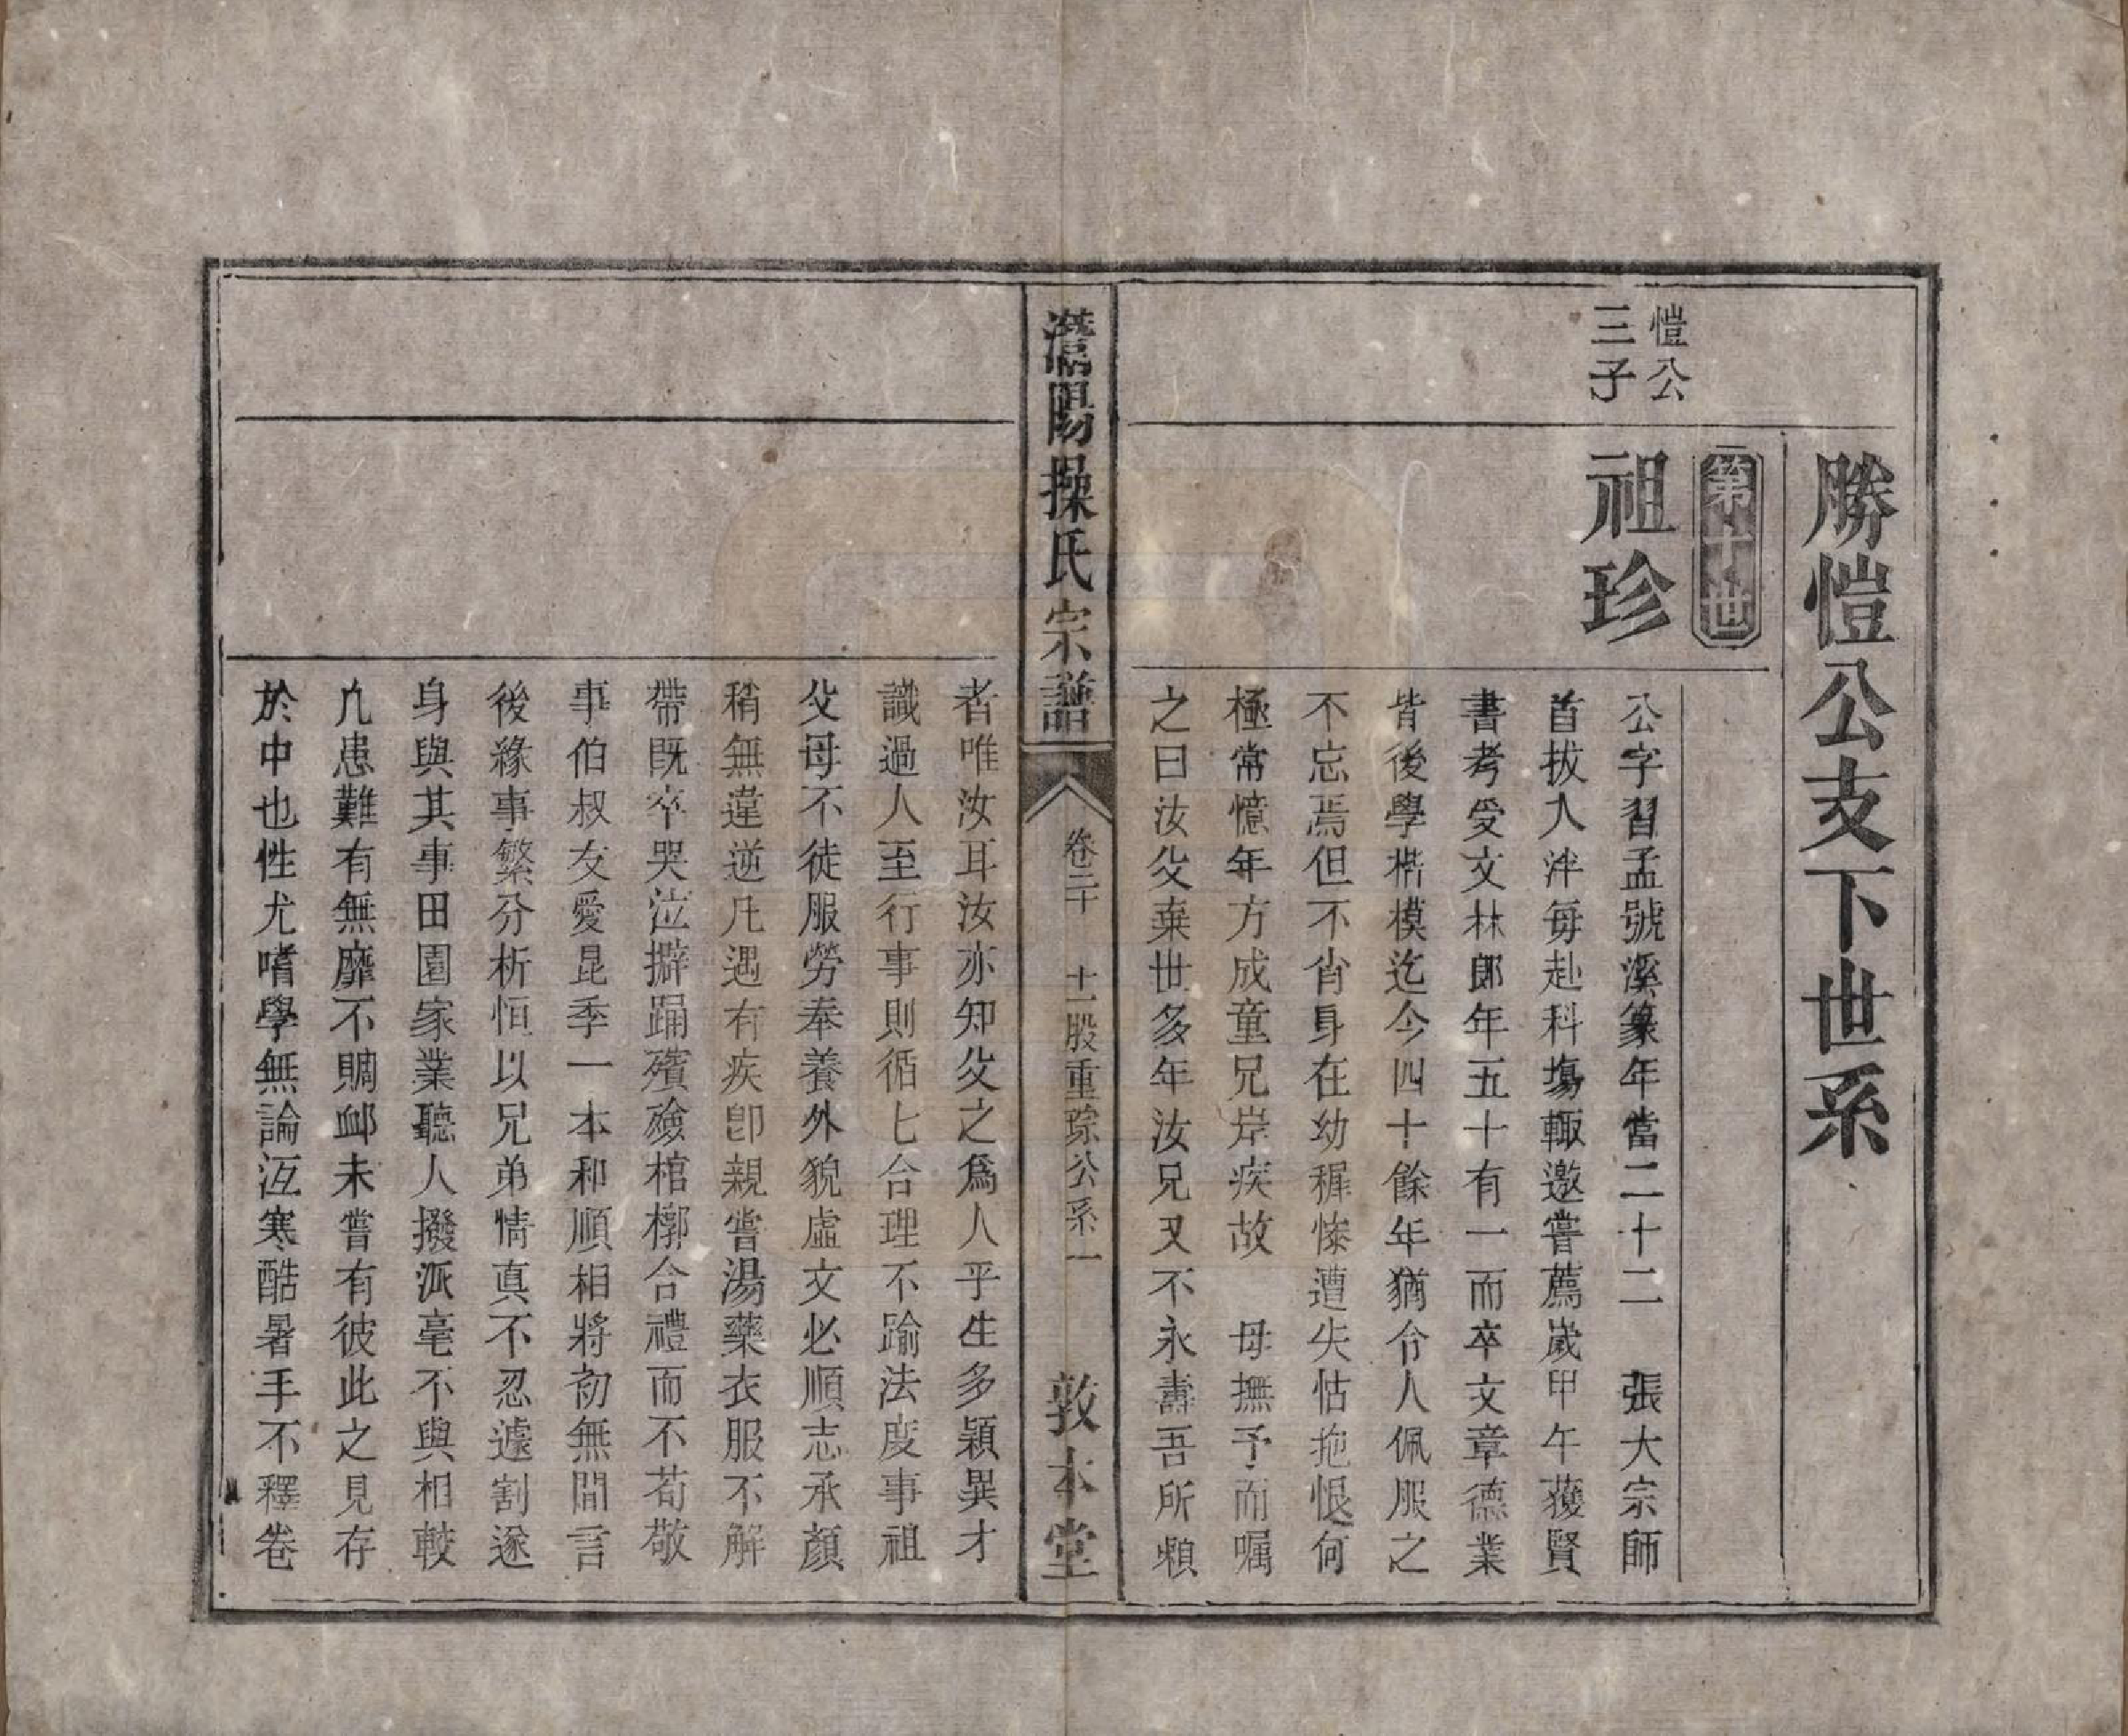 勝愷公支下世系
第十世
愷公
三子
祖珍
公字習孟號溪篆年當二十二　張大宗師
首拔入泮每赴科塲輙邀嘗薦嵗甲午獲賢
書考受文林郎年五十有一而卒文章德業
皆後學楷模迄今四十餘年猶令人佩服之
不忘焉但不肖身在幼穉慘遭失怙抱恨何
極常憶年方成童兄岸疾故　母撫予而嘱
之曰汝父棄世多年汝兄又不永壽吾所頼
灊陽操氏宗譜
卷二十
十一股重琮公系一
敦本堂
者唯汝耳汝亦知父之爲人乎生多穎異才
識過人至行事則循乚合理不踰法度事祖
父母不徒服勞奉養外貌虛文必順志承顏
稍無違逆凡遇有疾卽親嘗湯藥衣服不解
帶既卒哭泣擗踊殯殮棺槨合禮而不苟敬
事伯叔友愛昆季一本和順相將初無間言
後緣事繁分析恒以兄弟情真不忍遽割遂
身與其事田園家業聽人撥派毫不與相較
凢患難有無靡不賙䘏未嘗有彼此之見存
於中也性尤嗜學無論沍寒酷暑手不釋卷